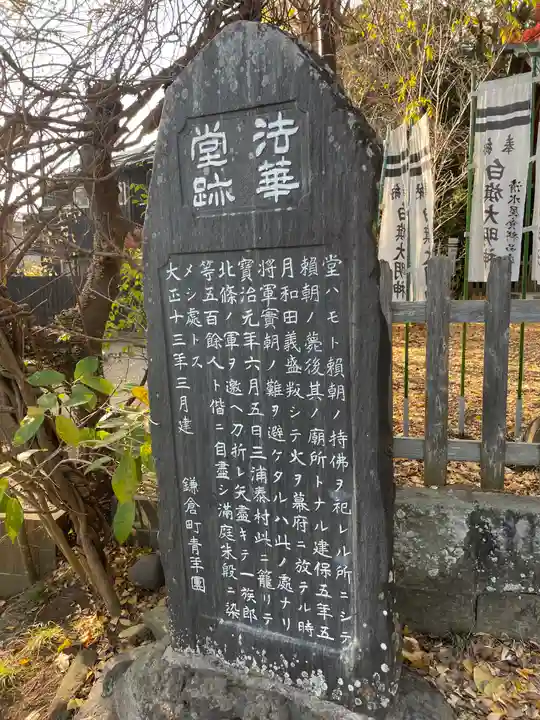 法華
堂跡
堂ハモト頼朝ノ持佛ヲ祀レル所ニシテ
頼朝ノ薨後其ノ廟所トナル建保五年五
月和田義盛叛シテ火ヲ幕府ニ放テル時
将軍實朝ノ難ヲ避ケタルハ此ノ處ナリ
寶治元年六月五日三浦泰村此ニ籠リテ
北條ノ軍ヲ邀ヘ刀折レ矢盡キテ一族郎
等五百餘人ト偕ニ自盡シ滿庭朱殷ニ染
メシ處トス
大正十三年三月建
鎌倉町青年團
白旗大明神
奉
白旗大明神